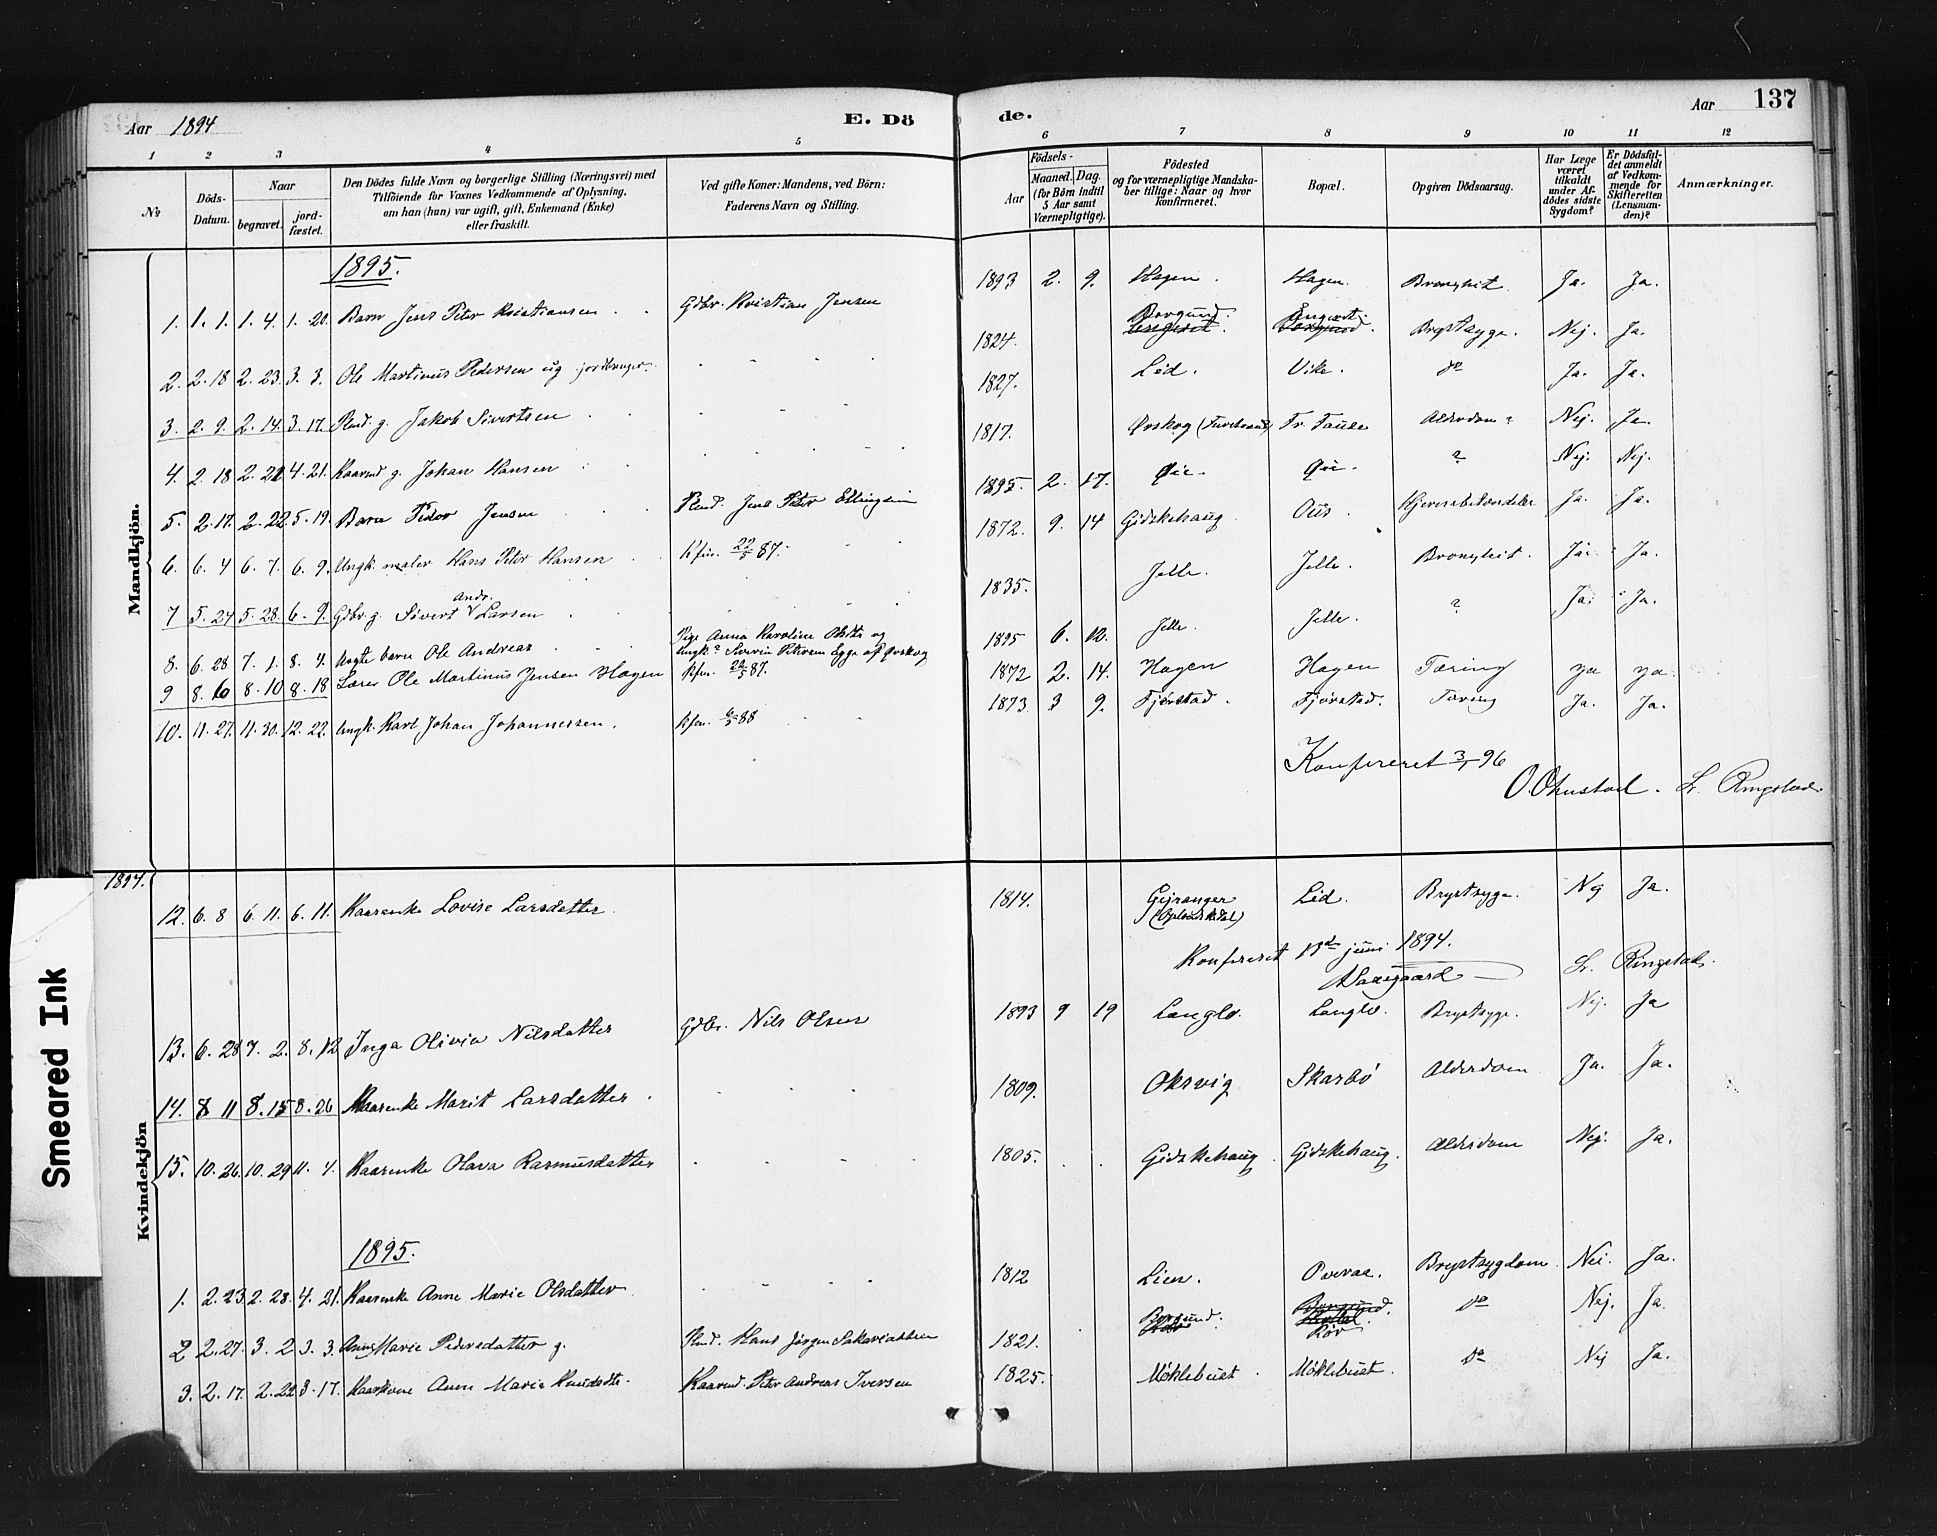 Aar 1894 E. Dö de. Aar 137
1 2 3 4 5 6 7 8 9 10 11 12
№ Döds-Datum. Naar begravet. jordfæstet. Den Dödes fulde Navn og borgerlige Stilling (Næringsvei) med Tilföiende for Voxnes Vedkommende af Oplysning, om han (hun) var ugift, gift, Enkemand (Enke) eller fraskilt. Ved gifte Koner: Mandens, ved Börn: Faderens Navn og Stilling. Födsels- Aar Maaned. Dag. (for Börn indtil 5 Aar samt Værnepligtige). Födested og for værnepligtige Mandskaber tillige: Naar og hvor konfirmeret. Bopæl. Opgiven Dödsaarsag. Har Læge været tilkaldt under Afdödes sidste Sygdom? Er Dödsfaldet anmeldt af Vedkommende for Skifteretten (Lensmanden)? Anmærkninger.
Mandkjön.
1895.
1. 1. 1. 1. 4. 1. 20. Barn Jens Peter Kristiansen Gdbr. Kristian Jensen 1893 2. 9. Hagen. Hagen. Bronghit. Ja. Ja.
2. 2. 18 2. 23. 3. 3. Ole Martinus Pedersen ug. jordbruger. 1824. Borgund. Brystsyge. Nej. Ja.
3. 2. 9. 2. 14. 3. 17. g. Jakob Sivertsen 1827. Lid. Vike. do Ja. Ja.
4. 2. 18 2. 4. 21. Kaarmd g. Johan Hansen 1817. Ørskog Fr. Alderdom Nej. Ja.
5. 2. 17. 2. 22 5. 19. Barn Peder Jensen Jens Peter Ellingsen 1895. 2. 17. Øie. Øie. ? Nej. Nej.
6. 6. 4 6. 7. 6. 9. Ungk. maler Hans Peter Hansen Kfm. 22/5 87. 1872. 9. 14 Gidskehaug Ja. Ja.
7 5. 24 5. 28. 6. 9. Gdbr. g. Sivert Andr. Larsen 1835. Jelle. Jelle. Bronghit. Ja. Ja.
8. 6. 28 7. 1. 8. 4. Uegte barn Ole Andreas Pige Anna Karoline og Ungk. Severin Petersen Egge af Ørskog 1895 6. 12. Jelle. Jelle. ? Ja. Ja.
9 8. 6 8. 10 8. 18 Lærer Ole Martinus Jensen Hagen Kfm. 87. 1872 2. 14. Hagen Hagen Tæring ya ya.
10. 11. 27. 11. 30. 12. 22. Ungk. Karl Johan Johannessen. Kfm. 88 1873. 3 9. Fjørstad. Fjørstad. Tæring Ja. Ja.
Konfereret 3/1 96
O. L. Ringstad.
Kvindekjön
1894.
12. 6. 8 6. 11. 6. 11. Kaarenke Lovise Larsdatter. 1814. Gejranger Lid. Brystsyge. Nej Ja.
Konfereret juni 1894.
L. Ringstad.
13. 6. 28 7. 2. 8. 12 Inga Olivia Nilsdatter Gdbr. Nils Olsen 1893 9 19 Langlo. Langlo. Brystsyge. Nej. Ja
14. 8 11 8. 15 8. 26 Kaarenke Marit Larsdatter. 1809. Oksvig Skarbö Alderdom Ja. Ja.
15. 10. 26. 10. 29 11. 4. Kaarenke Olava Rasmusdatter 1805. Gidskehaug. Gidskehaug. Alderdom Nej. Ja.
1895.
1. 2. 23. 2. 28. 4. 21. Kaarenke Anne Marie Olsdatter 1812 Lien. Overaa. Brystsygdom. Nei. Ja.
2 2. 27. 3. 2 3. 3. Anne Marie Pedersdatter g. Hans Jørgen Sakariassen 1821. Borgund. do Nej. Ja.
3. 2. 17. 2. 22 3. 17. Kaarkone Anne Marie Knudsdtr. Kaarmd. Peter Andreas Iversen 1825. Möklebust. Möklebust. do Nej Ja.
Smeared Ink